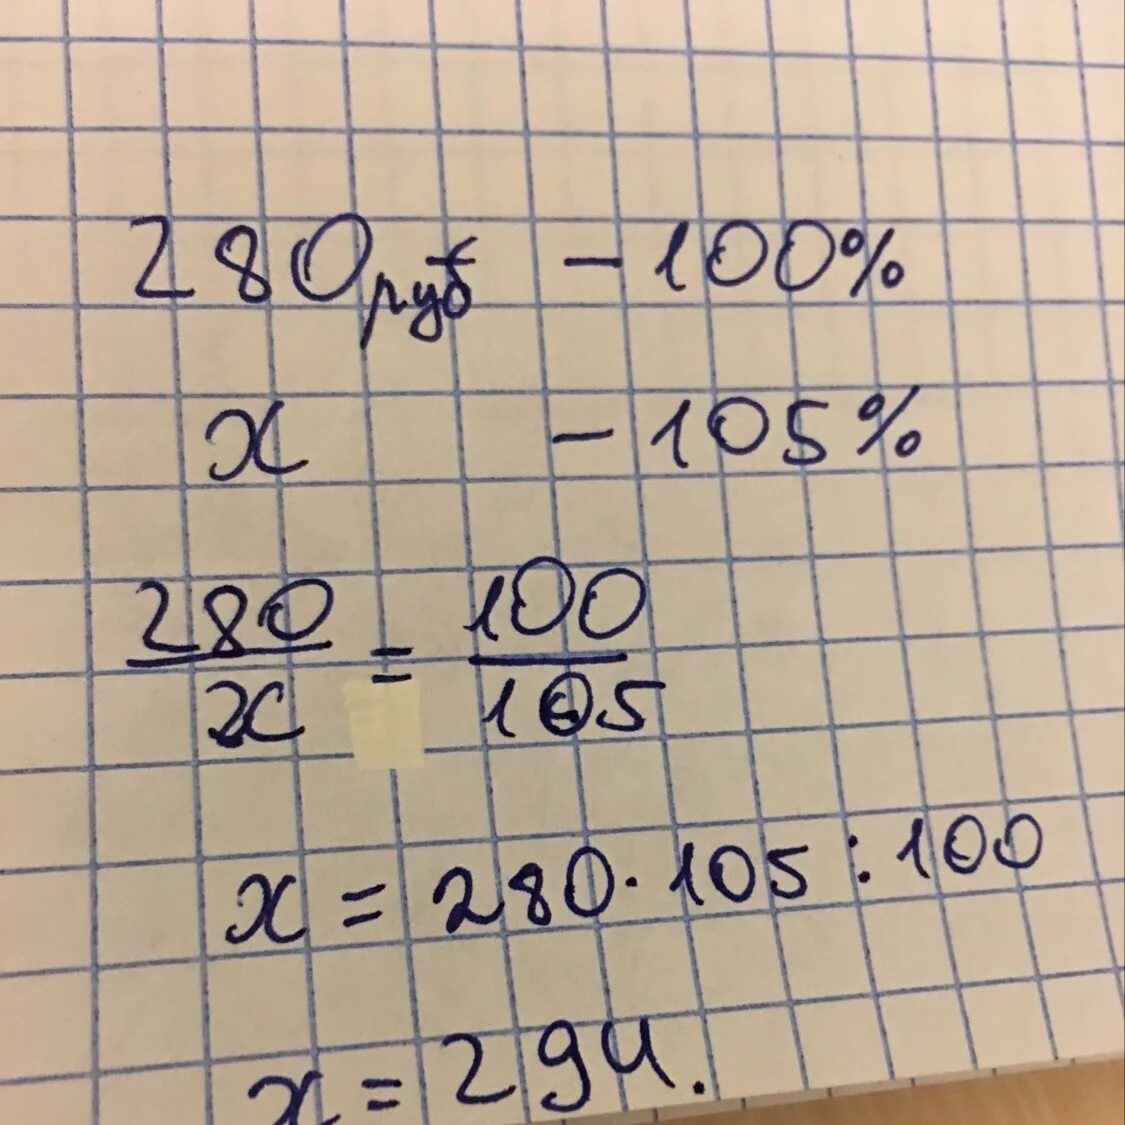 280 руб – 100%
x – 105%
280/x = 100/105
x = 280 · 105 : 100
x = 294.